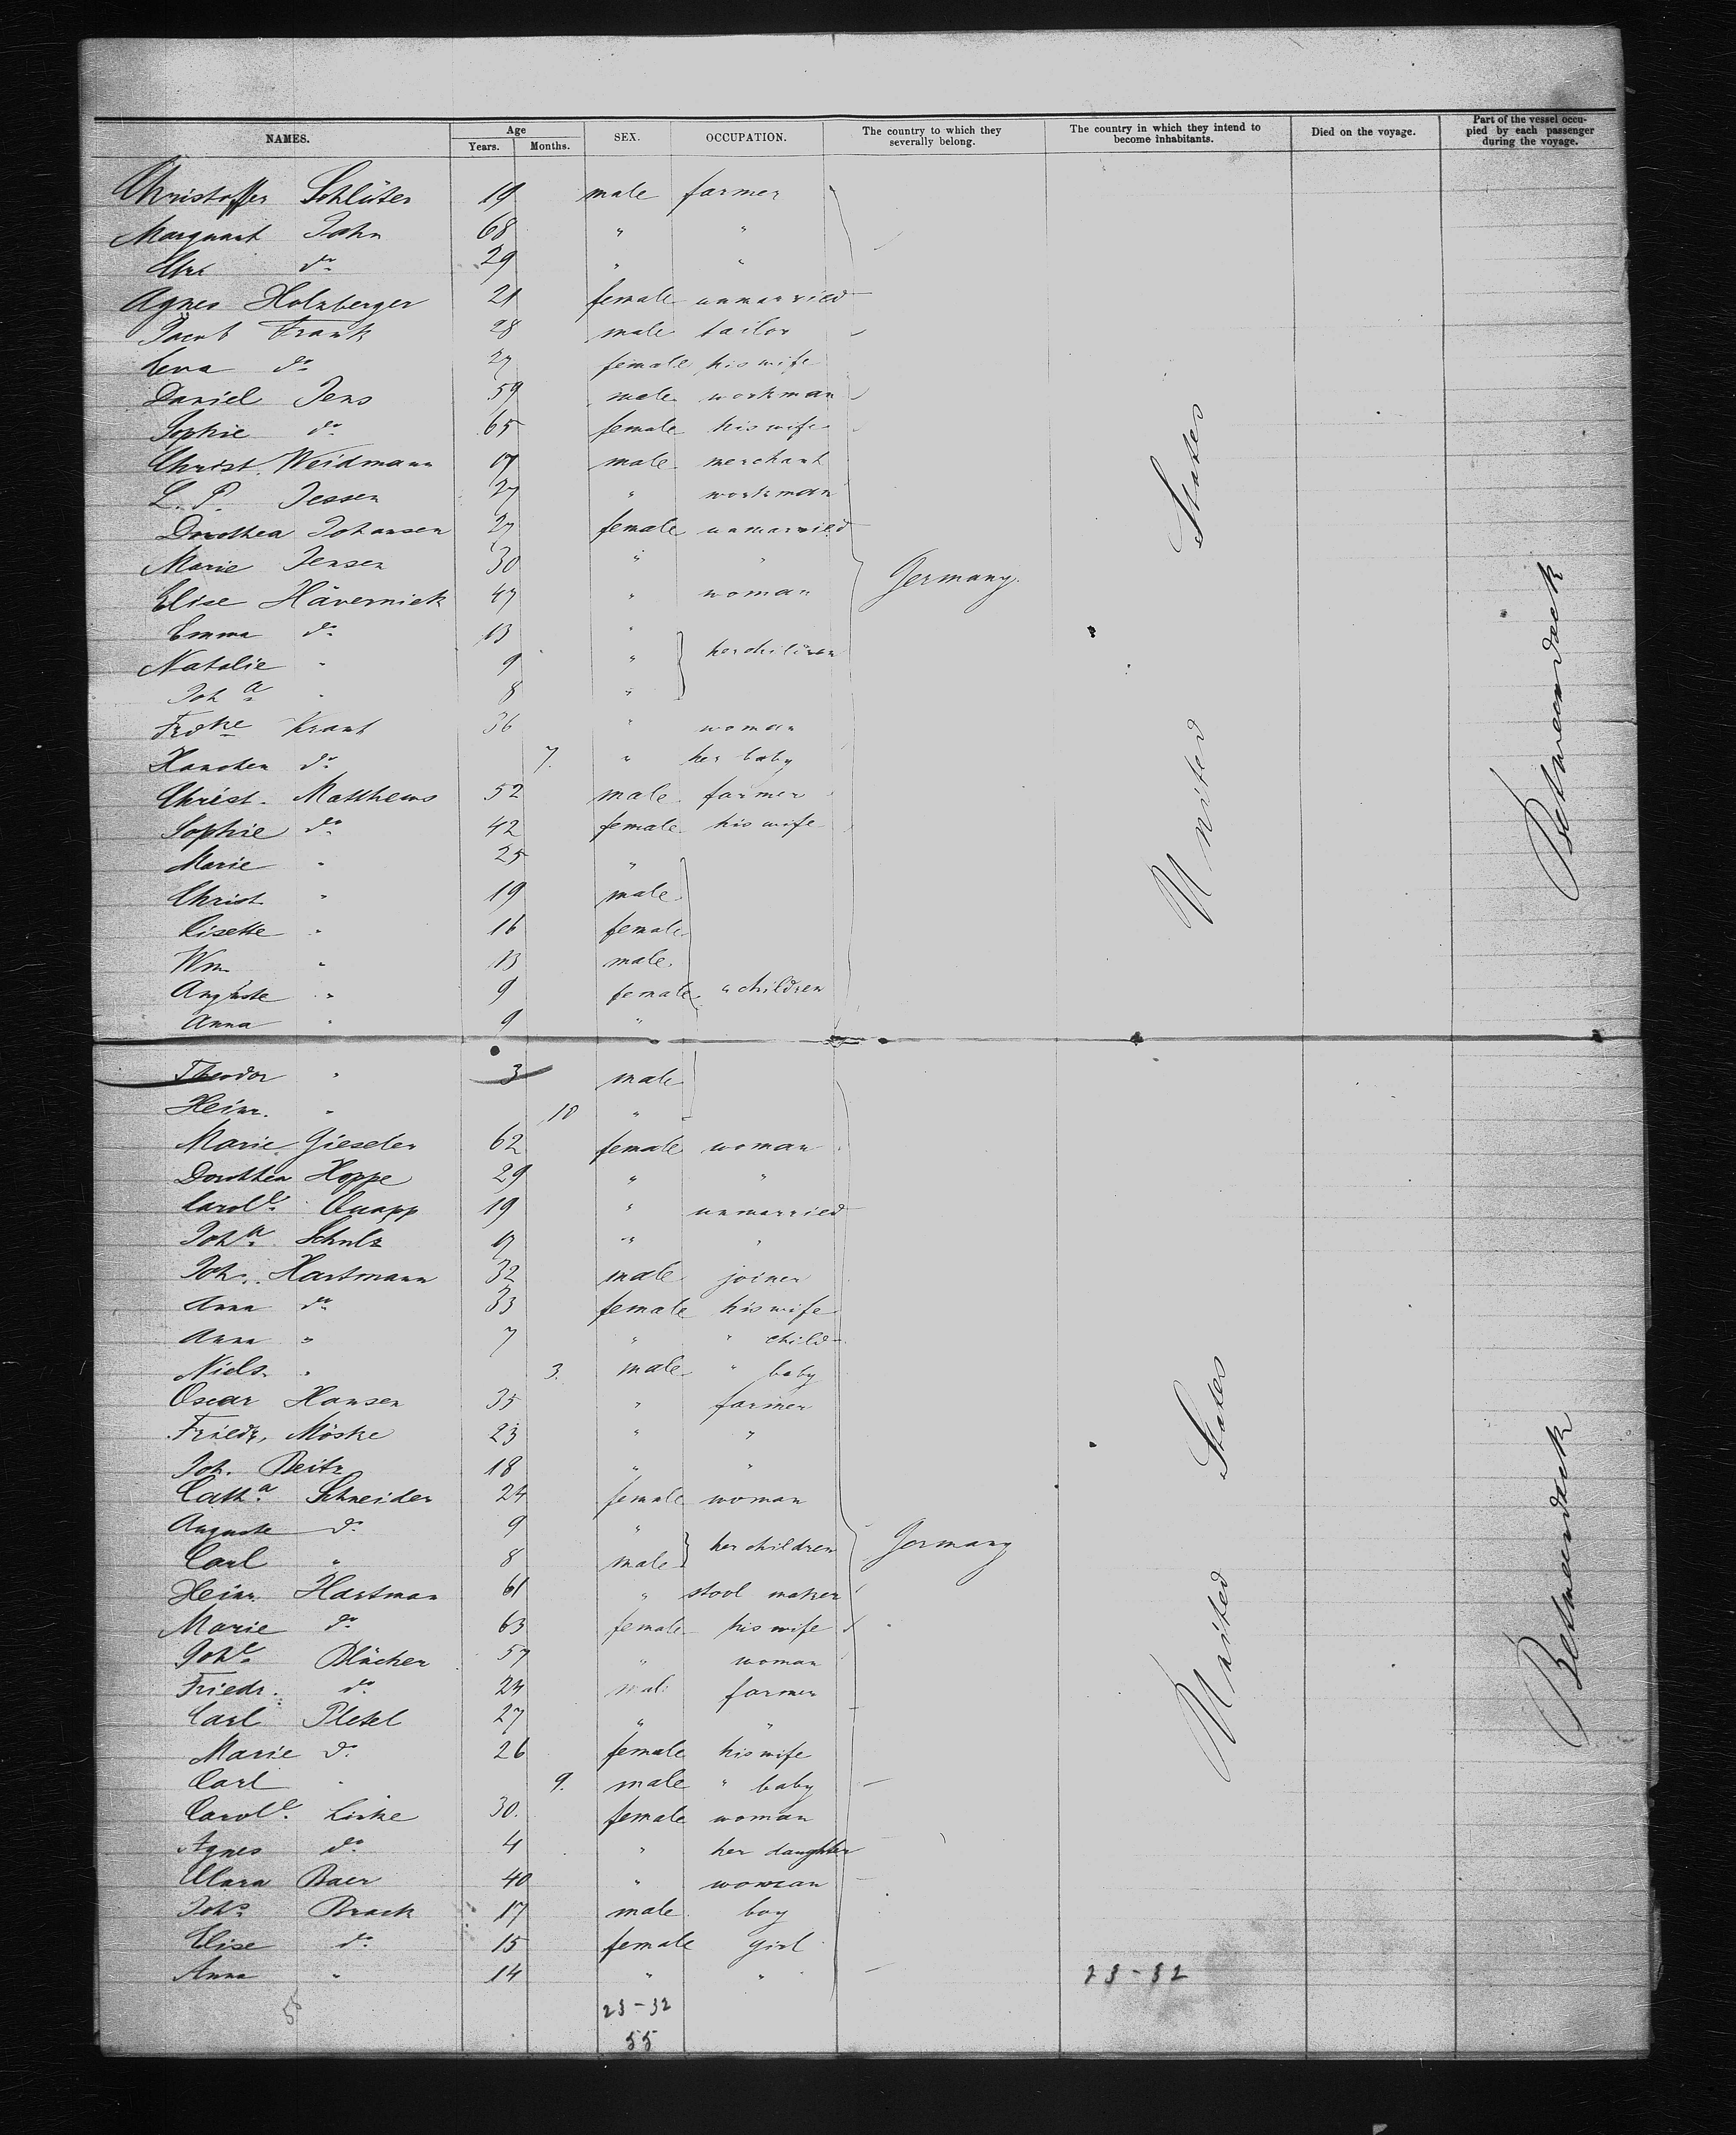 NAMES. Age Years. Months. SEX. OCCUPATION. The country to which they severally belong. The country in which they intend to become inhabitants. Died on the voyage. Part of the vessel occupied by each passenger during the voyage.
Christoffer Schlüter 19 male farmer
Marquart Jahn 68 " "
do 29 " "
Agnes Holzberger 21 female unmarried
Jacob Frank 28 male tailor
Lena do 27 female his wife
Daniel Jens 59 male workman
Sophie do 65 female his wife
Christ. Weidmann 17 male merchant
L. P. Jessen 27 " workman
Dorothea Johansen 27 female unmarried
Marie Jensen 30 " "
Elise Häverniek 47 " woman
Germany.
Emma do 13 "
Natalie " 9 " her children
Joha " 8 "
Frdke Krant 36 " woman
Hanchen do 7. " her baby
Christ. Matthews 52 male farmer
Sophie do 42 female his wife
Marie " 25 "
Christ " 19 male
Lisette " 16 female
Wm " 13 male
Auguste " 9 female " children
Anna " 9 "
United States
Betweendeck
Theodor " 3 male
Heinr. " 10 "
Marie Gieseler 62 female woman
Dorothea Hoppe 29 " "
Carole Quapp 19 " unmarried
Joha Schulz 17 " "
Joh. Hartmann 32 male joiner
Anna do 33 female his wife
Anna " 7 " " child
Niels " 3. male " baby
Oscar Hansen 35 " farmer
Friedr. Möske 23 " "
Joh. Beitz 18 " "
Catha Schneider 24 female woman
Auguste do 9 "
Carl " 8 male her children
Germany
Heinr. Hartman 61 " stool maker
Marie do 63 female his wife
Johe Blücher 57 " woman
Friedr. do 24 male farmer
Carl Pletel 27 " "
Marie do 26 female his wife
Carl " 9. male " baby
Carole Linke 30. female woman
Agnes do 4 " her daughter
Clara Baer 40 " woman
Johs Brack 17 male boy
Elise do 15 female girl
Anna " 14 " "
United States
Betweendeck
23-32
55 23-32
55